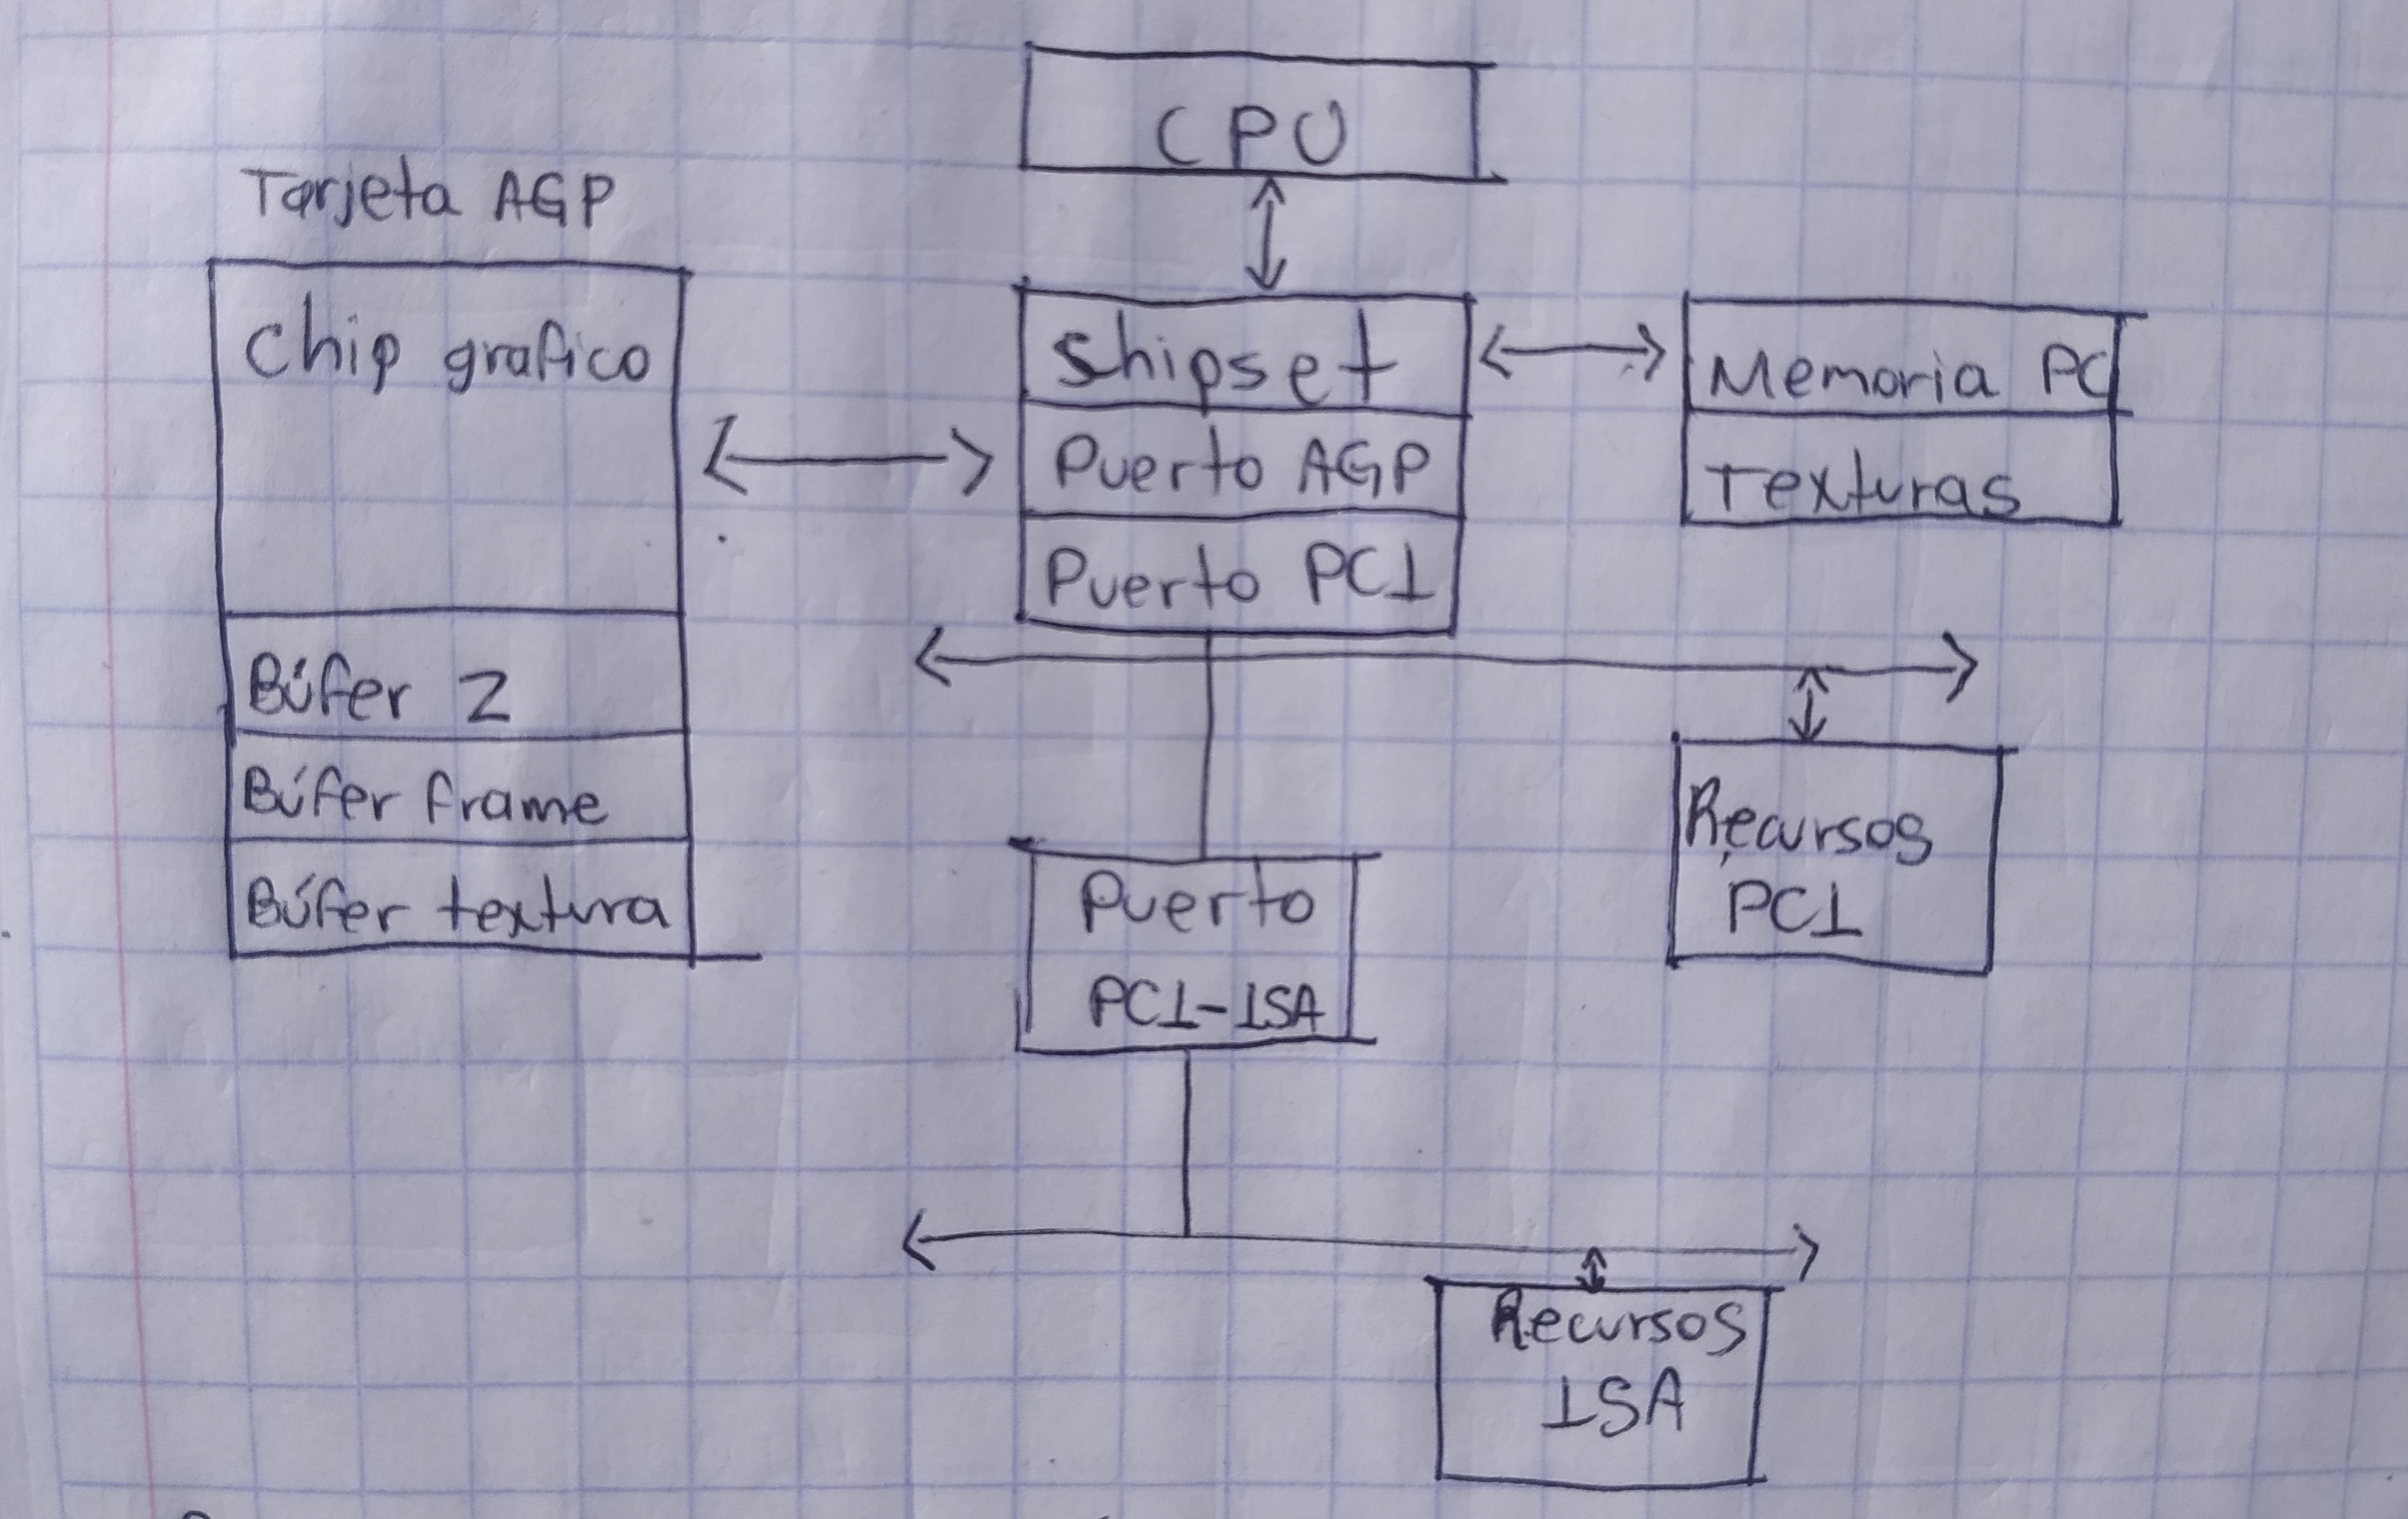 CPU
Tarjeta AGP
Chip grafico
Búfer Z
Búfer frame
Búfer textura
Shipset
Puerto AGP
Puerto PCI
Memoria PC
Texturas
Recursos
PCI
Puerto
PCI-ISA
Recursos
ISA